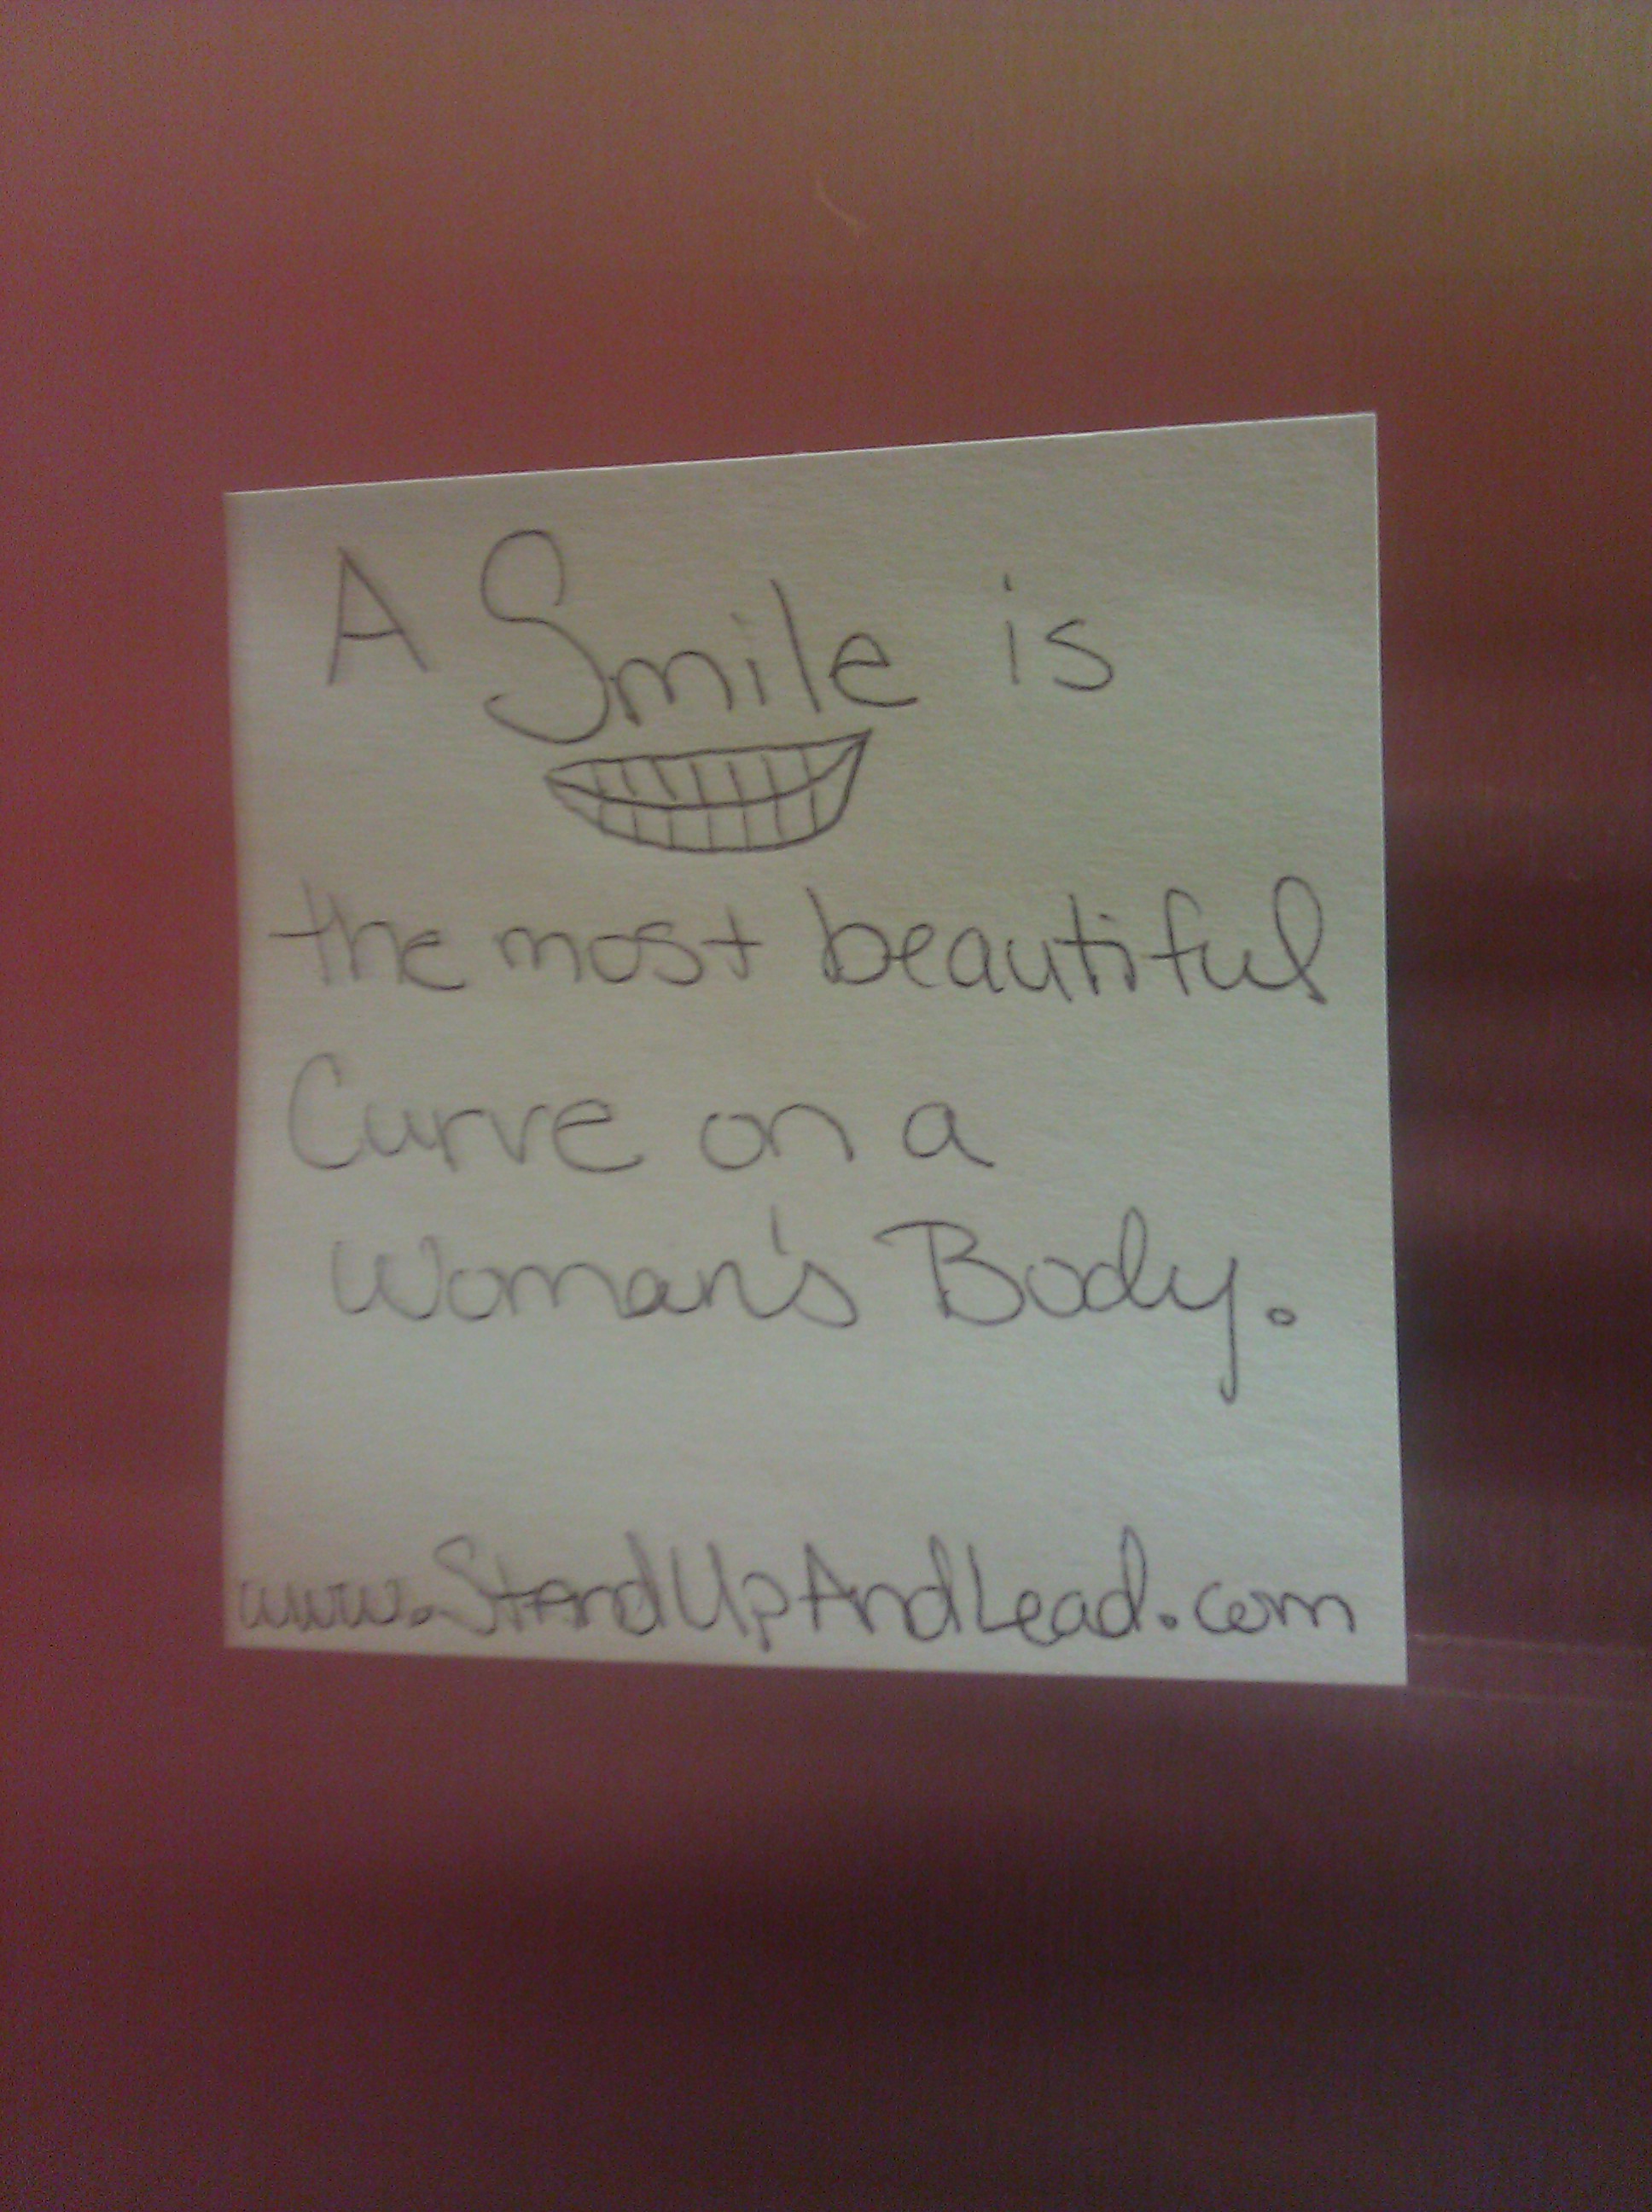 A Smile is
the most beautiful
Curve on a
Woman's Body.
www.StandUpAndLead.com